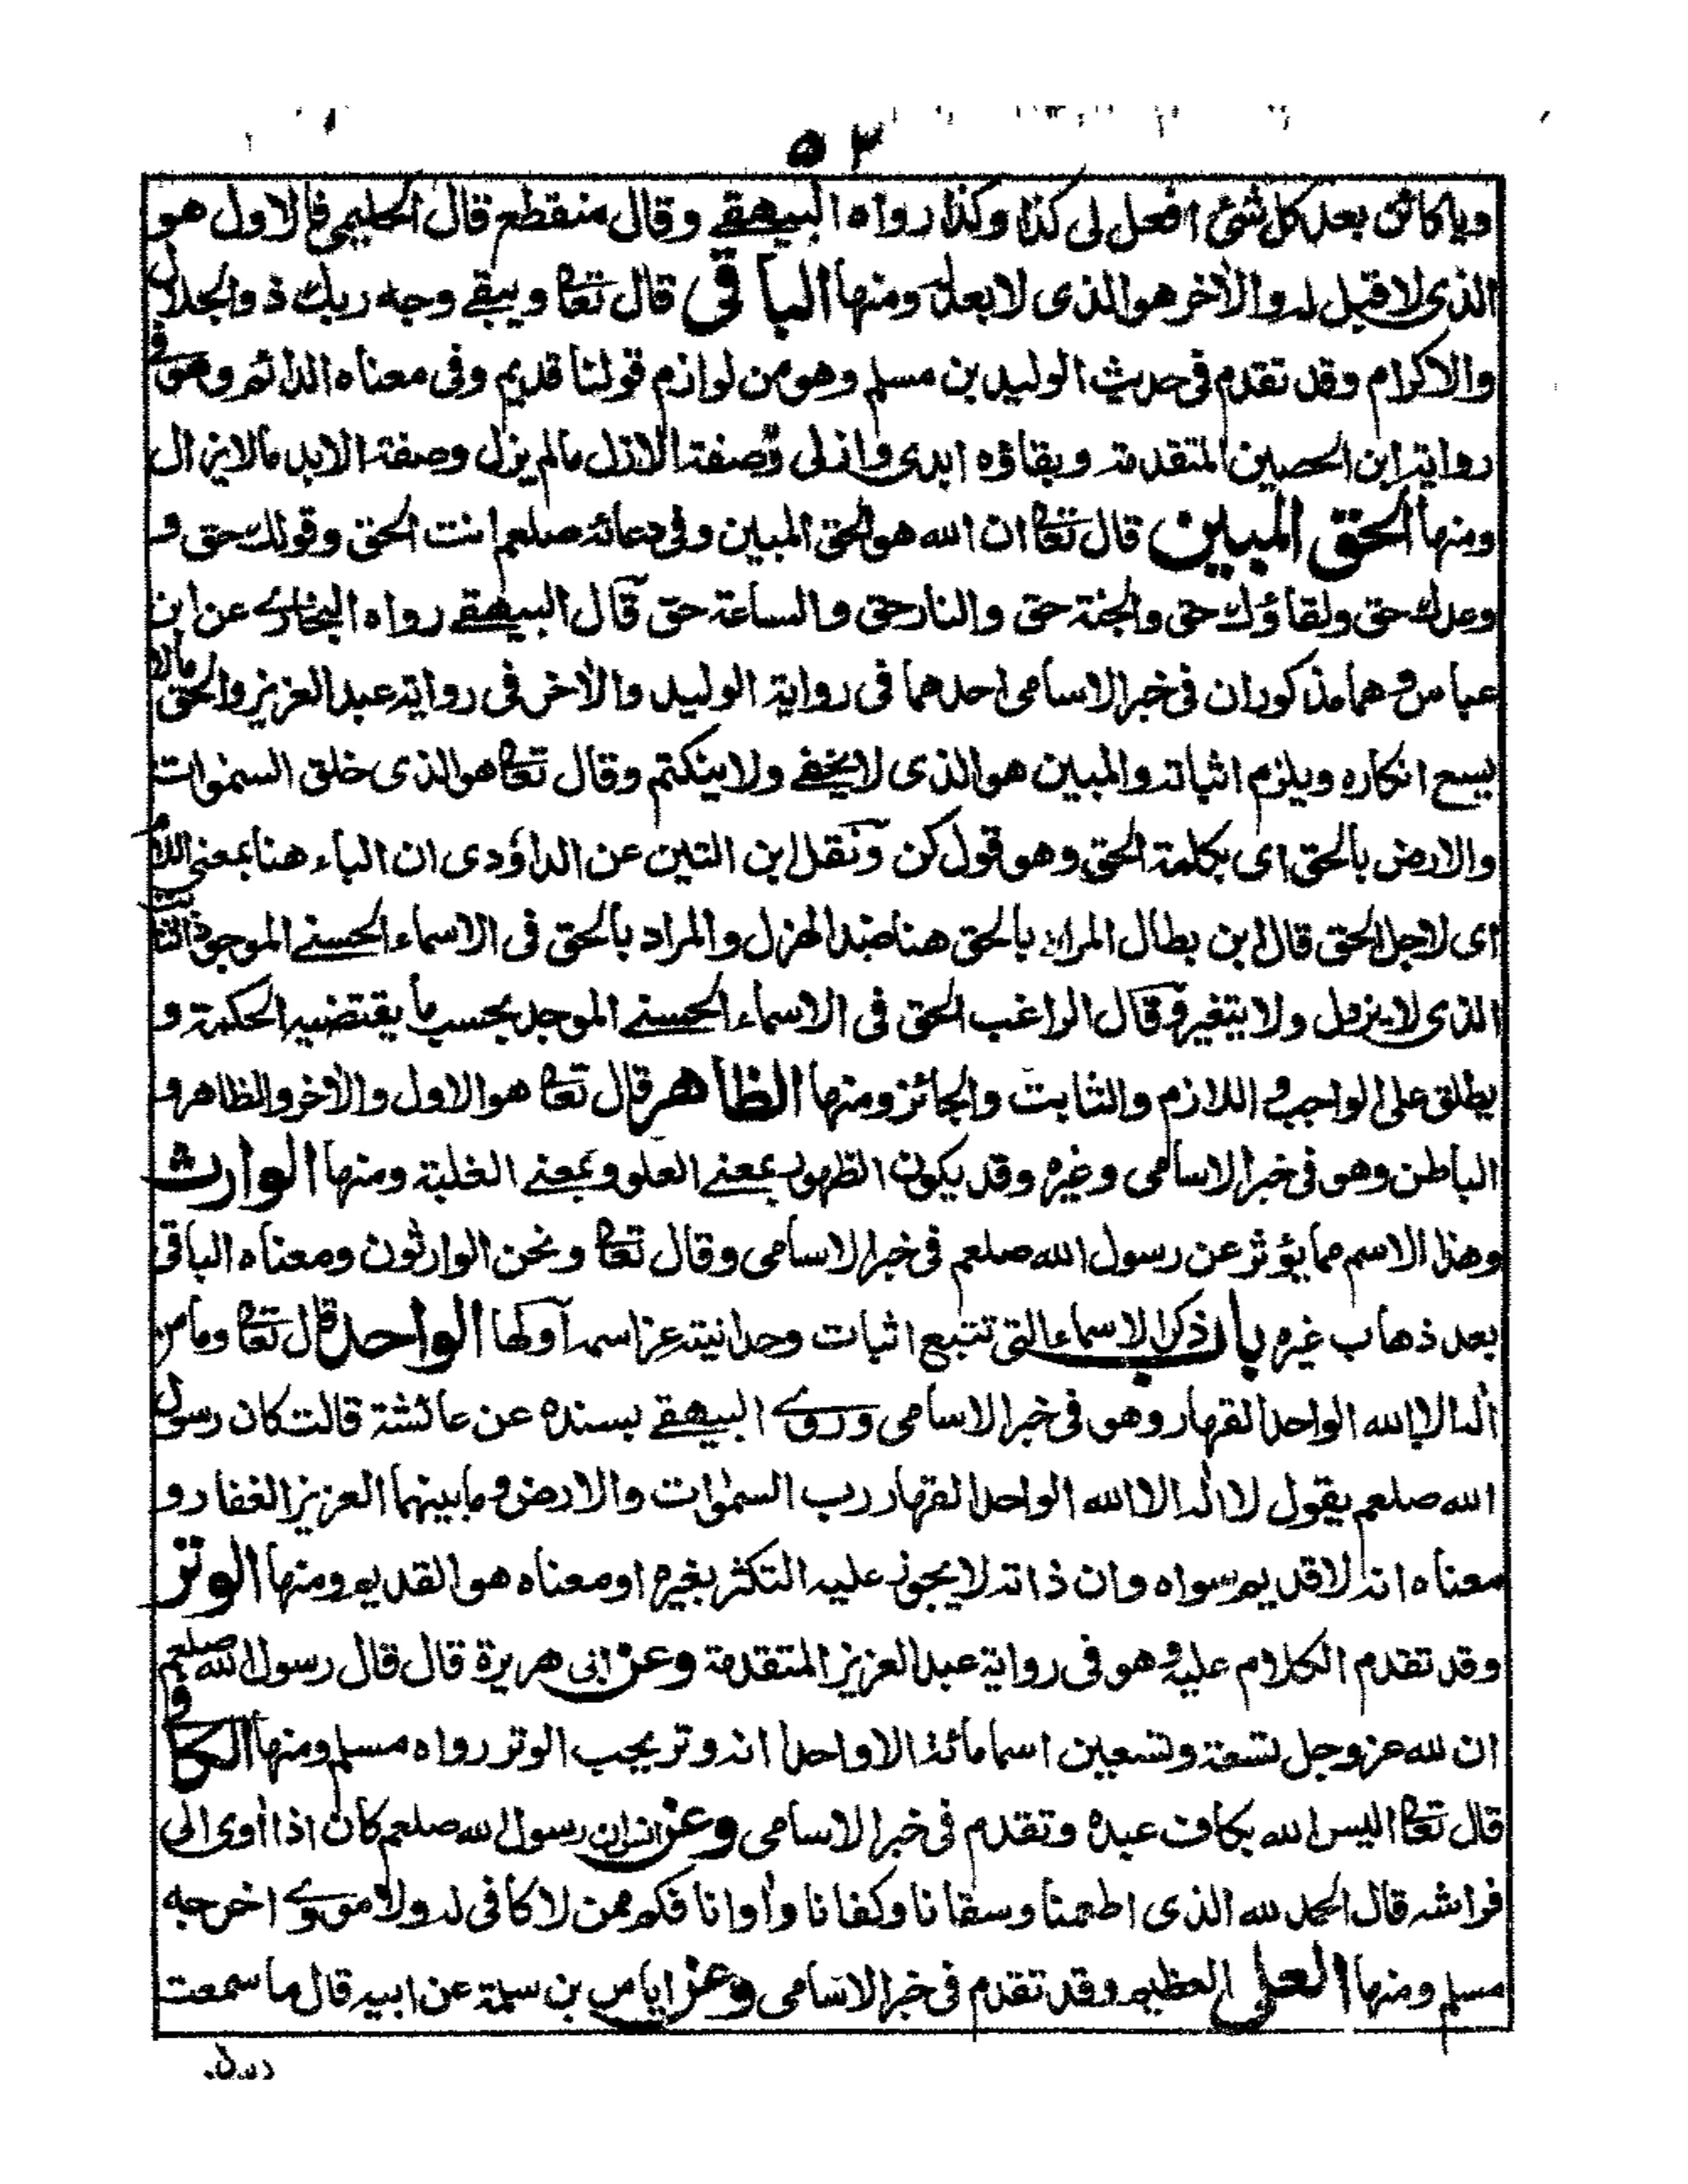 ٥٣
وياكائن بعد كل شئ افعل لى كذا وكذا رواه البيهقے وقال منقطع قال الحليمى فالاول هو
الذى لا قبل له والاٰخر هو الذى لا بعد له ومنها الباقى قال تعا ويبقے وجه ربك ذو الجلال
والاكرام وقد تقدم فى حديث الوليد بن مسلم وهو من لوازم قولنا قديم وفى معناه الدائم وهو فى
رواية ابن الحصين المتقدمة وبقاؤه ابدى وازلى وصفة الازل مالم يزل وصفة الابد مالا يزال
ومنها الحق المبين قال تعا ان الله هو الحق المبين وفى دعائه صلعم انت الحق وقولك حق و
وعدك حق ولقاؤك حق والجنة حق والنار حق والساعة حق قال البيهقے رواه البخارے عن ابن
عباس وهما مذكوران فى خبر الاسامى احدهما فى رواية الوليد والاٰخر فى رواية عبد العزيز والحق مالا
يسع انكاره ويلزم اثباته والمبين هو الذى لا يخفے ولا ينكتم وقال تعا هو الذى خلق السمٰوات
والارض بالحق اى بكلمة الحق وهو قول كن ونقل ابن التين عن الداؤدى ان الباء هنا بمعنى اللام
اى لاجل الحق قال ابن بطال المراد بالحق هنا ضد الهزل والمراد بالحق فى الاسماء الحسنے الموجود الثابت
الذى لا يزول ولا يتغير وقال الراغب الحق فى الاسماء الحسنے الموجد بحسب ما يقتضيه الحكمة و
يطلق على الواجب و اللازم والثابت والجائز ومنها الظاهر قال تعا هو الاول والاٰخر والظاهر و
الباطن وهو فى خبر الاسامى وغيره وقد يكون الظهور بمعنے العلو وبمعنے الغلبة ومنها الوارث
وهذا الاسم مما يؤثر عن رسول الله صلعم فى خبر الاسامى وقال تعا ونحن الوارثون ومعناه الباقى
بعد ذهاب غيره باب ذكر الاسماء التى تتبع اثبات وحدانيته عز اسمه اولها الواحد قال تعا وما من
اله الا الله الواحد القهار وهو فى خبر الاسامى وروے البيهقے بسنده عن عائشة قالت كان رسول
الله صلعم يقول لا اله الا الله الواحد القهار رب السمٰوات والارض وما بينهما العزيز الغفار و
معناه انه لا قديم سواه وان ذاته لا يجوز عليه التكثر بغيره او معناه هو القديم ومنها الوتر
وقد تقدم الكلام عليه وهو فى رواية عبد العزيز المتقدمة وعن ابى هريرة قال قال رسول الله صلعم
ان لله عز وجل تسعة وتسعين اسما مائة الا واحدا انه وتر يحب الوتر رواه مسلم ومنها الكافى
قال تعا اليس الله بكاف عبده وتقدم فى خبر الاسامى وعن انس ان رسول الله صلعم كان اذا اٰوى الى
فراشه قال الحمد لله الذى اطعمنا وسقانا وكفانا واٰوانا فكم ممن لا كافى له ولا مووے اخرجه
مسلم ومنها العلى العظيم وقد تقدم فى خبر الاسامى وعن اياس بن سلمة عن ابيه قال ما سمعت